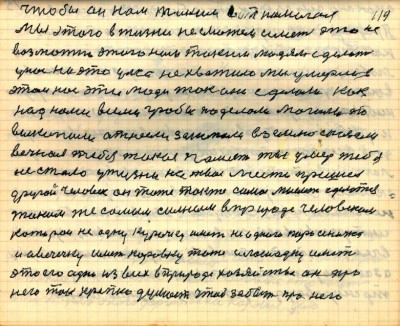 чтобы он нам таким вот помогал 119
мы этого в жизни не сможем иметь это не
возможно этого нам таким людям сделать
ума на это ума не хватило мы умерли в
этом нас эти люди так они сделали как
над нами всеми гробы поделали могилы
выкопали отнесли закопали в землю сказали
вечная тебе такая память ты умер тебя
не стало у жизни на твое место пришел
другой человек он тоже то
таким же самым сильным в природе человеком
которое не одну курочку иметь не одного поросенка
и овечечку иметь коровку тоже и лошадку иметь
это его одно из всех в природе хозяйство он про
него так крепко думает чтоб забыть про него